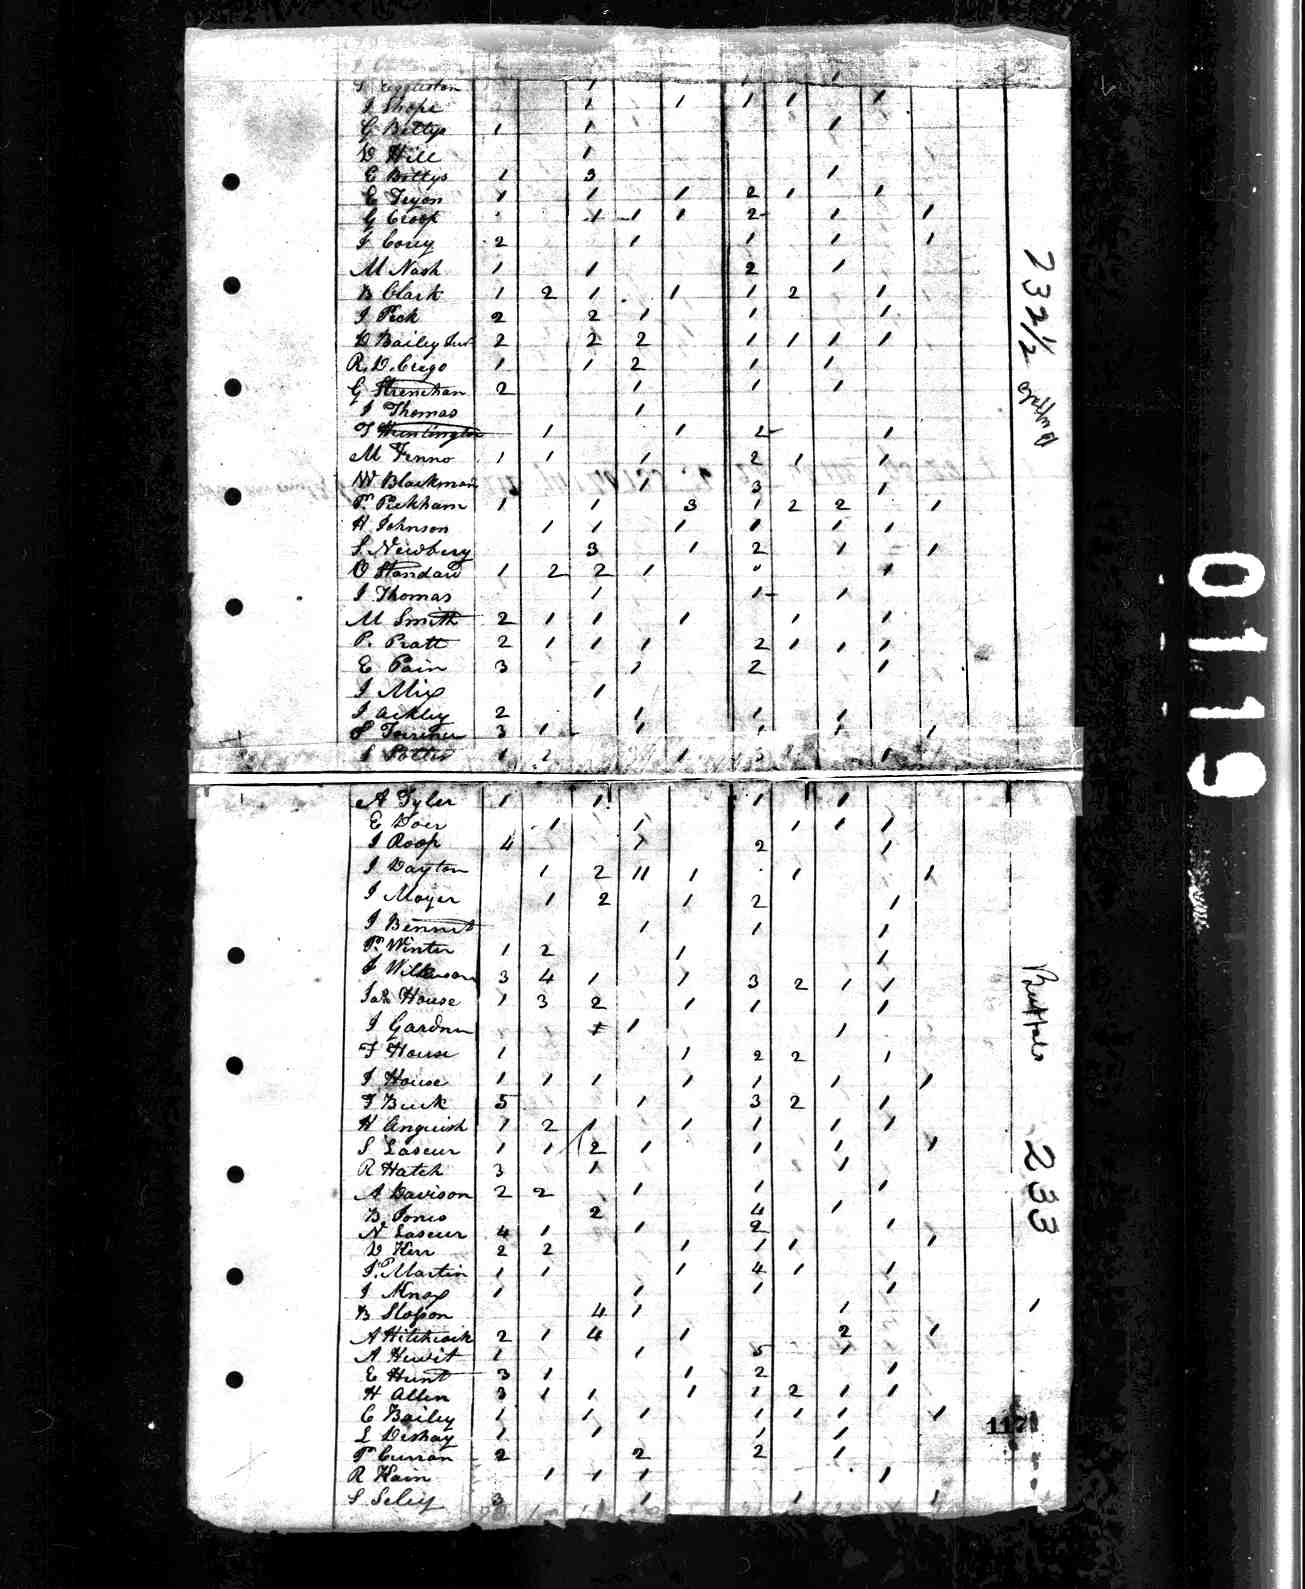 J Shope 1 1 1 1 1
G Bettys 1 1 1
D Hill 1
E Bettys 1 3 1
E Tryon 1 1 1 2 1 1
G Croop 1 1 1 2 1 1
J Corey 2 1 1 1 1
M Nash 1 1 2 1
B Clark 1 2 1 1 1 2 1
J Peck 2 2 1 1 1
D Bailey Jur 2 2 2 1 1 1 1
R. D. Crego 1 1 2 1 1
G 2 1 1 1
J Thomas 1
T Huntington 1 1 2 1
M Fenno 1 1 1 2 1 1
W Blackman 1 3 1
P. Peckham 1 1 3 1 2 2 1
H Johnson 1 1 1 1 1 1
S Newbery 3 1 2 1 1
O 1 2 2 1 1
J Thomas 1 1 1
M Smith 2 1 1 1 1 1
P. Pratt 2 1 1 1 2 1 1 1
E Pain 3 1 2 1
J Mix 1
J Ackley 2 1 1 1
S 3 1 1 1 1 1
S Potter 1 2 1 1
232 1/2 Buffalo
A Tyler 1 1 1 1
E Doer 1 1 1 1 1
J Roop 4 1 2 1
J Dayton 1 2 11 1 1 1
J Moyer 1 2 1 2 1
J Bennet 1 1 1
P. Winter 1 2 1 1
J Wilkerson 3 4 1 1 3 2 1 1
Jos House 1 3 2 1 1 1
J Gardner 1 1
F House 1 1 2 2 1
J House 1 1 1 1 1 1 1
F Buck 5 1 3 2 1
H Anguish 1 2 1 1 1 1 1
S Laseur 1 1 2 1 1 1 1
R Hatch 3 1 1
A Davison 2 2 1 1 1
B Jones 2 4 1
N Laseur 4 1 1 2 1
D Kerr 2 2 1 1 1 1
J. Martin 1 1 1 4 1 1
J Knox 1 1 1 1
B Slosson 4 1 1 1
A Hitchcock 2 1 4 1 2 1
A Hewit 1 1 5 1
E Hunt 3 1 1 2 1
H Allen 3 1 1 1 1 2 1 1
C Bailey 1 1 1 1 1 1 1
L Deshay 1 1 1 1
P Curran 2 2 2 1
R Kain 1 1 1 1
S Seley 3 1 1 1
Buffalo 233
117
0119